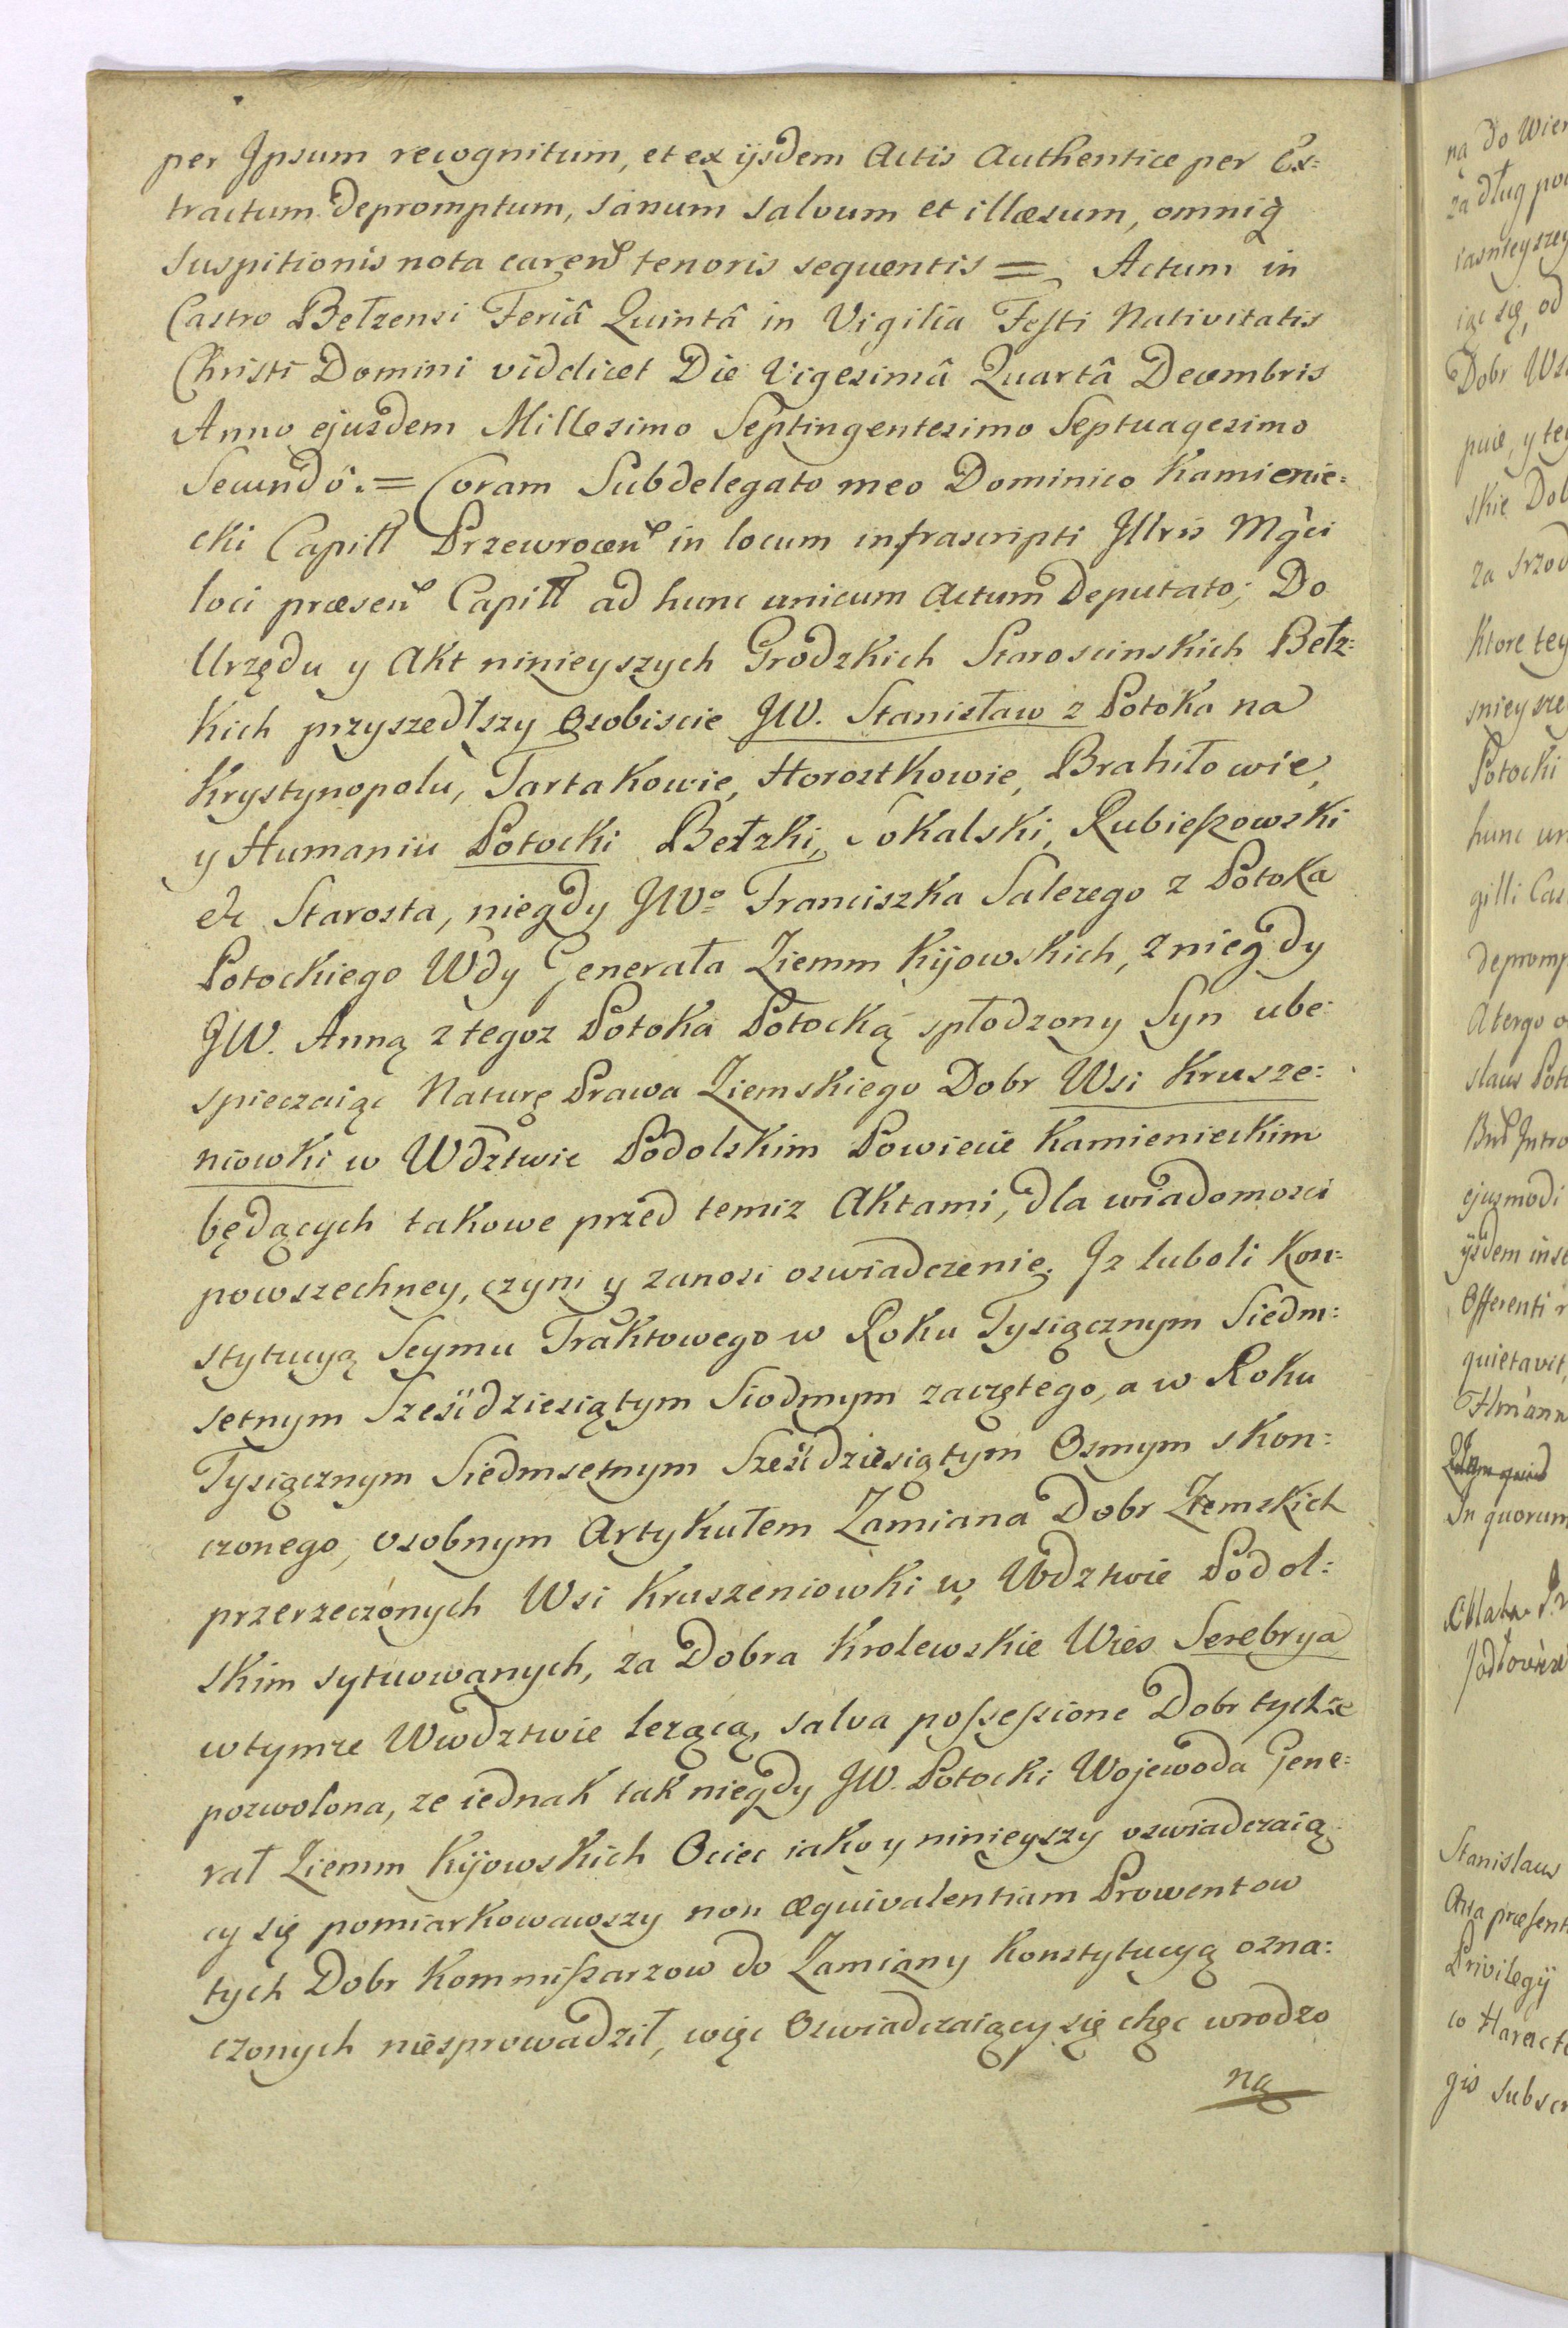 per Jpsum recognitum, et ex ijsdem Actis Authentice per Ex:
tractum depromptum, sanum salvum et illæsum, omniq̀
suspitionis nota caren̄ tenoris sequentis = Actum in
Castro Bełzensi Feriâ Quintâ in Vigilia Festi Nativitatis
Christi Domini videlicet Die Vigesimâ Quartâ Decembris
Anno ejusdem Millesimo Septingentesimo Septuagesimo
Secundô. = Coram Subdelegato meo Dominico Kamienie:
cki Capitl Przewrocen̄ in locum infrascripti Jllris Mg̀ci
loci præsen̄ Capitl ad hunc unicum Actum Deputato; Do
Urzędu y Akt ninieyszych Grodzkich Staroscinskich Bełz:
kich przyszedłszy Osobiscie JW. Stanisław z Potoka na
Krystynopolu, Tartakowie, Horostkowie, Brahiłowie,
y Humaniu Potocki Bełzki, Sokalski, Rubieszowski
etc Starosta, niegdy JWo Franciszka Salezego z Potoka
Potockiego Wdy Generała Ziemm Kijowskich, z niegdy
JW. Anną z tegoz Potoka Potocką spłodzony Syn ube:
spieczaiąc Naturę Prawa Ziemskiego Dobr Wsi Krusze:
niowki w Wdztwie Podolskim Powiecie Kamienieckim
będących takowe przed temiz Aktami, dla wiadomosci
powszechney, czyni y zanosi oswiadczenie. Jz luboli Kon:
stytucyą Seymu Traktowego w Roku Tysiącznym Siedm:
setnym Sześćdziesiątym Siodmym zaczętego, a w Roku
Tysiącznym Siedmsetnym Sześćdziesiątym Osmym skon:
czonego, osobnym Artykułem Zamiana Dobr Ziemskich
przerzeczonych Wsi Kruszeniowki w Wdztwie Podol:
skim sytuowanych, za Dobra Krolewskie Wies Serebrya
w tymze Wwdztwie lezącą, salva possessione Dobr tychze
pozwolona, ze iednak tak niegdy JW. Potocki Wojewoda Gene:
rał Ziemm Kijowskich Ociec iako y ninieyszy oswiadczaią:
cy się pomiarkowawszy non æquivalentiam Prowentow
tych Dobr Kommissarzow do Zamiany Konstytucyą ozna:
czonych niesprowadził, więc Oswiadczaiący się chęc wrodzo
ną
ną do Wier
za dług
ią się, od
Dobr
puie, y te
skie Dob
za
Ktore tey
Potocki
hunc un
gilli Cas
depromp
A tergo
slaus Poto
ejusmodi
ijsdem
Offerenti
quietavit,
In quorum
Stanislaus
Privilegij